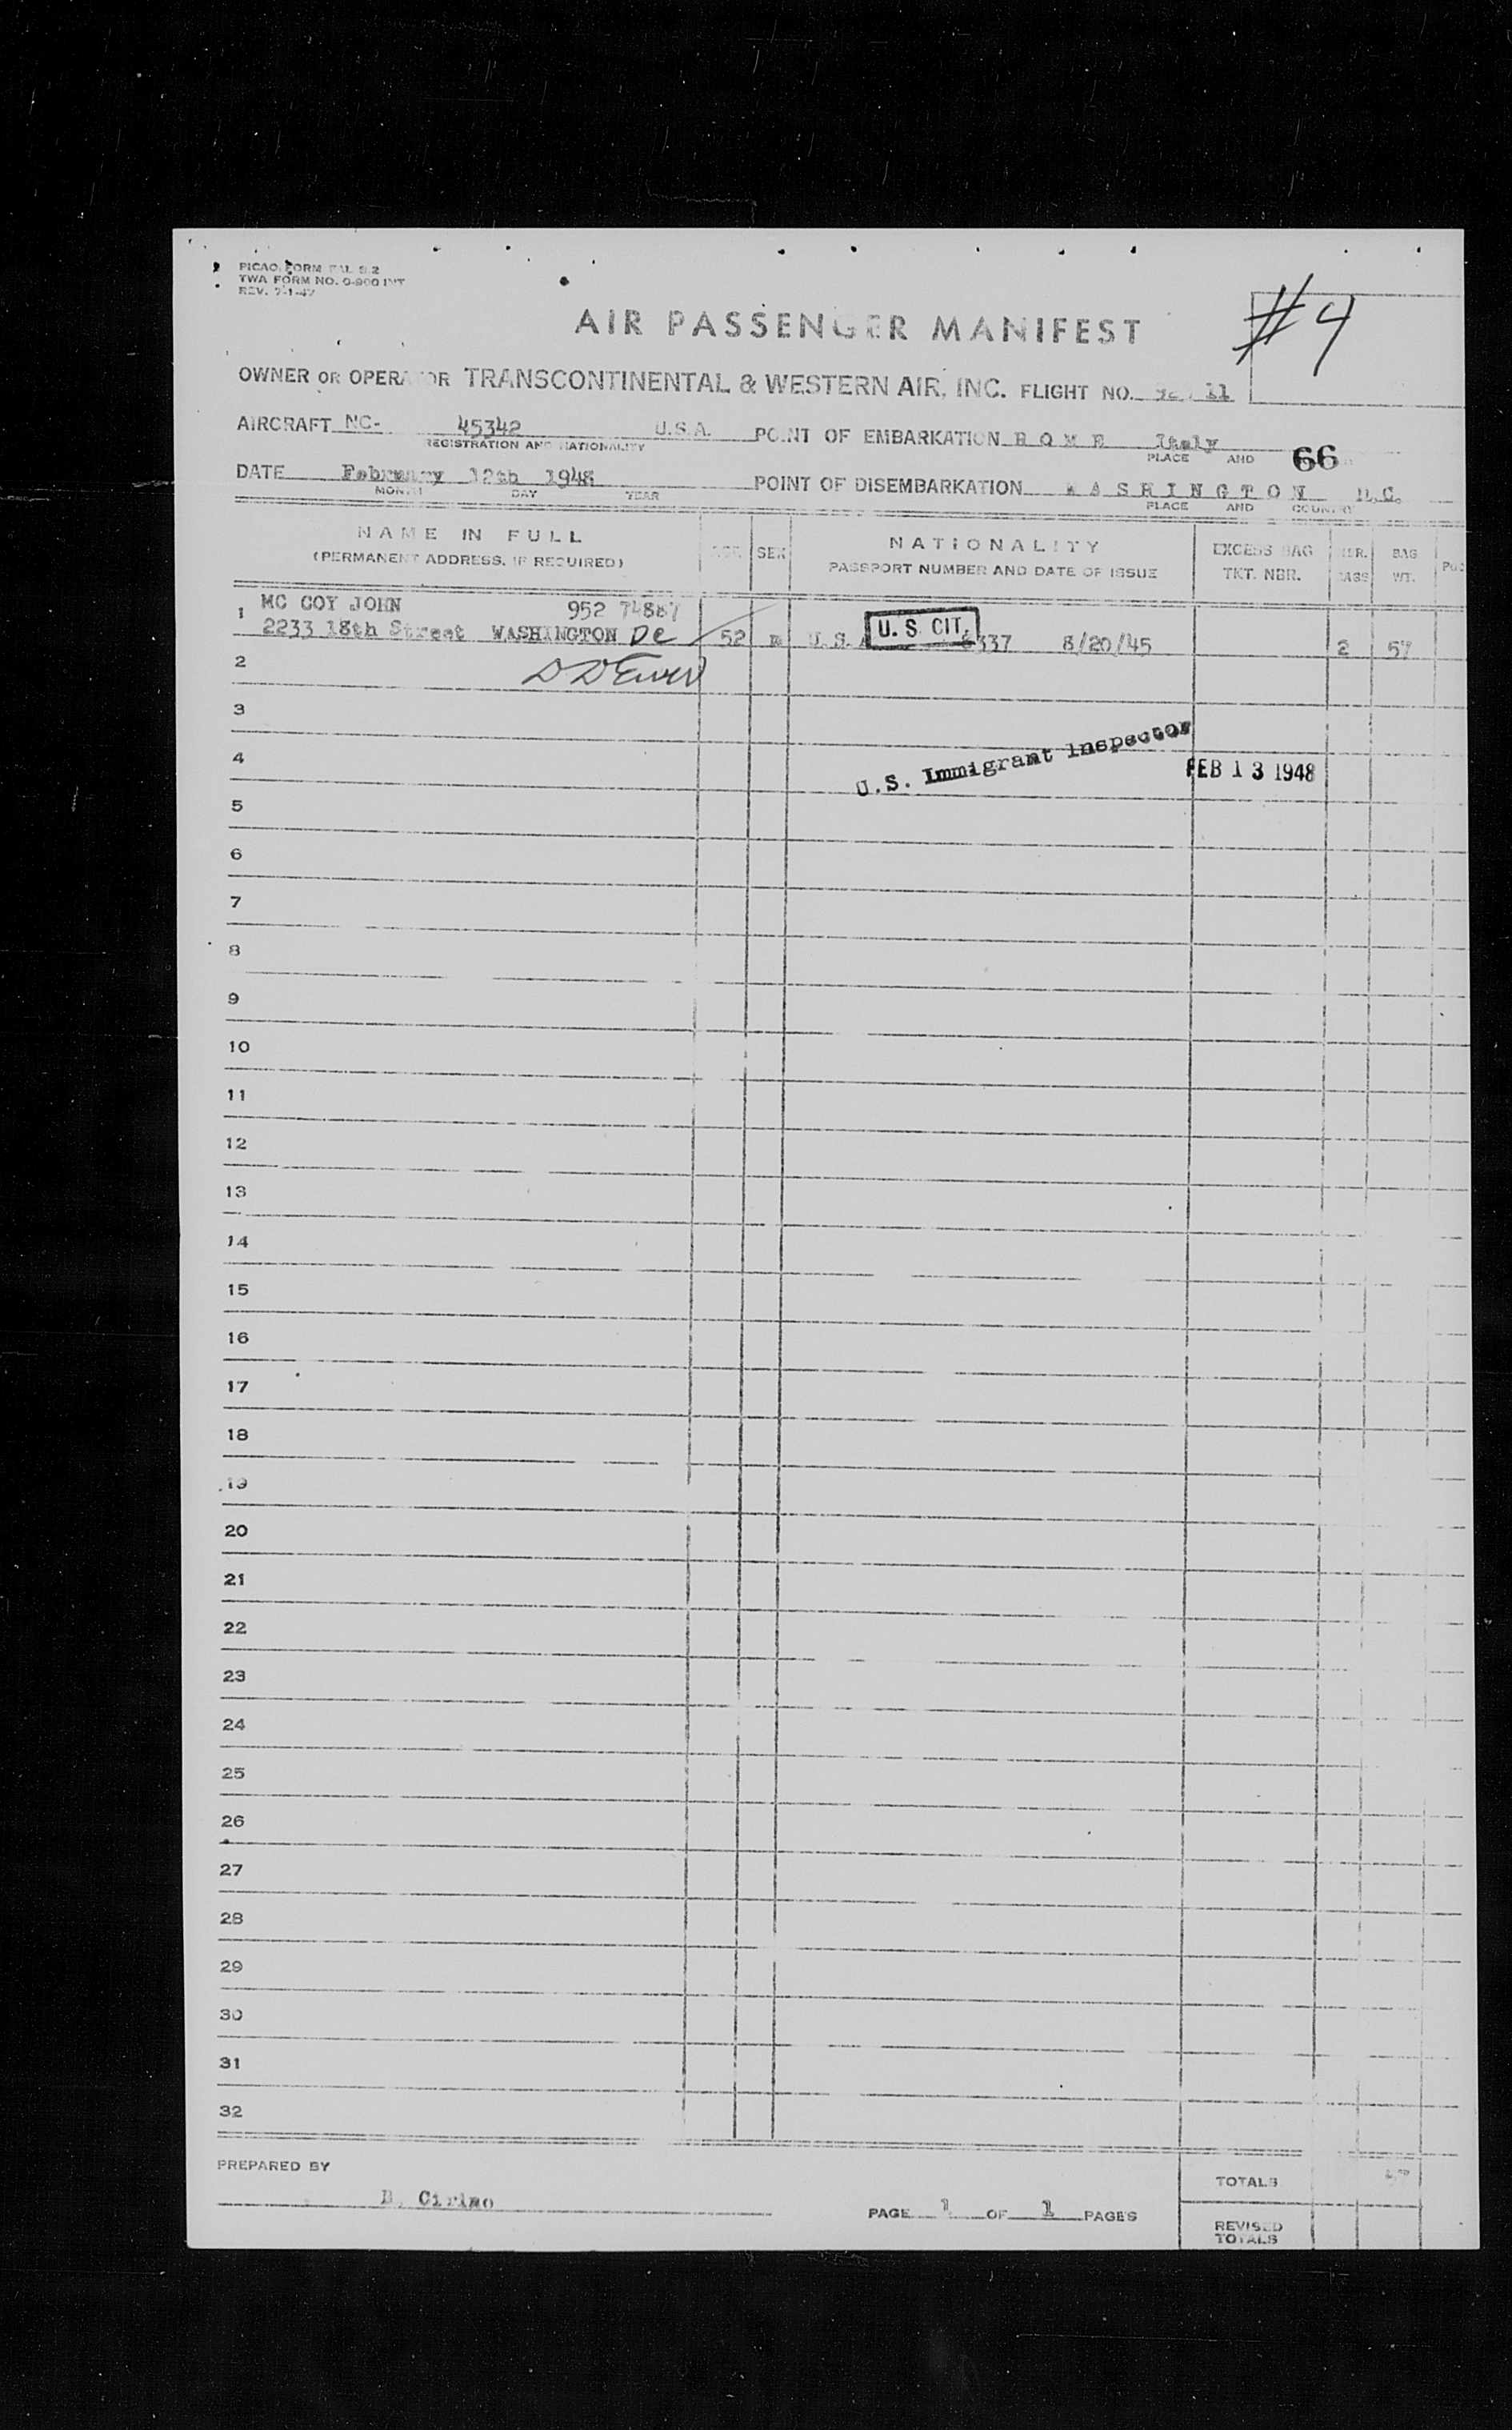 PICAO FORM FAL S.2
TWA FORM NO. O-900 INT
REV. 7-1-47
#4
AIR PASSENGER MANIFEST
OWNER OR OPERATOR TRANSCONTINENTAL & WESTERN AIR, INC. FLIGHT NO. 11
AIRCRAFT NC- 45342 U.S.A. POINT OF EMBARKATION R O M E Italy
REGISTRATION AND NATIONALITY PLACE AND 66
DATE February 12th 1948 POINT OF DISEMBARKATION W A S H I N G T O N D.C.
MONTH DAY YEAR PLACE AND COUNTRY
NAME IN FULL AGE SEX NATIONALITY EXCESS BAG NBR. BAG
(PERMANENT ADDRESS, IF REQUIRED) PASSPORT NUMBER AND DATE OF ISSUE TKT. NBR. BAGS WT.
1 MC COY JOHN 952 74887
2233 18th Street WASHINGTON DC 52 m U.S.A U. S. CIT. 337 8/20/45 2 57
2
3
U.S. Immigrant Inspector
4 FEB 13 1948
5
6
7
8
9
10
11
12
13
14
15
16
17
18
19
20
21
22
23
24
25
26
27
28
29
30
31
32
PREPARED BY TOTALS
PAGE 1 OF 1 PAGES
REVISED
TOTALS